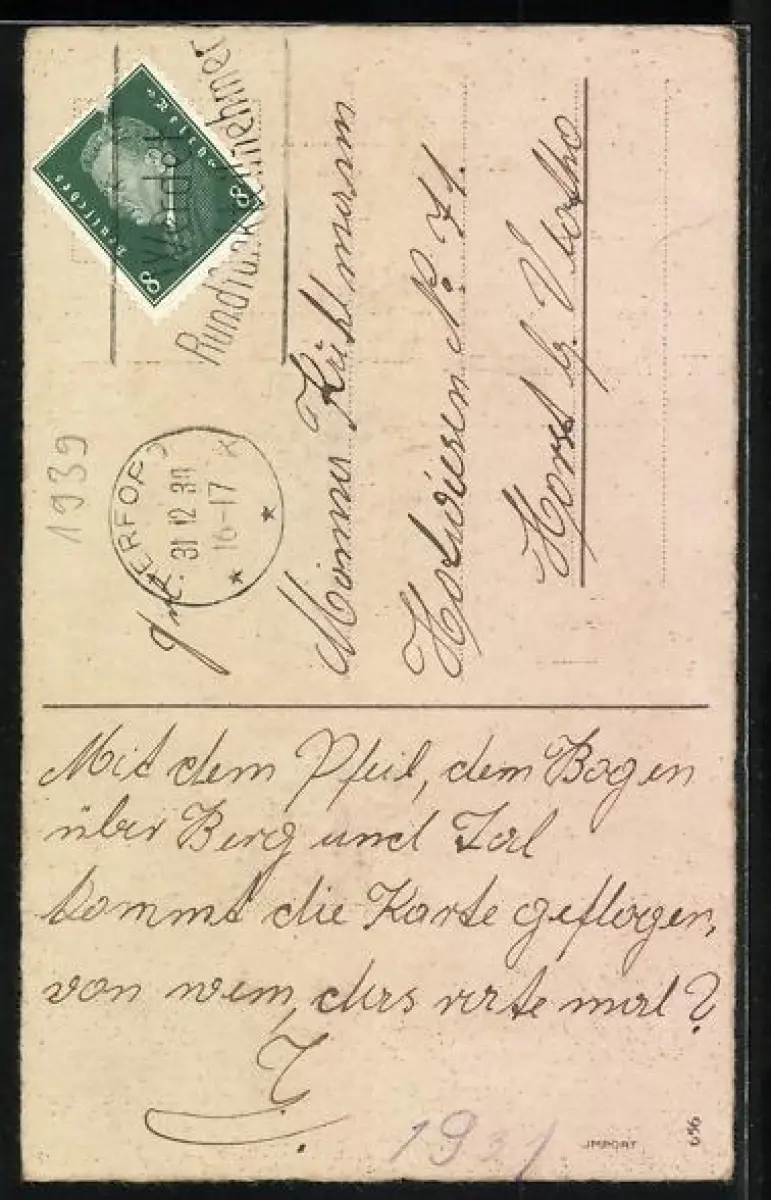 Deutsches Reich
8 8
Werdet
Rundfunkteilnehmer
1939
HERFORD
31 12 30
16-17
Frl.
Hotwiesen No. 71.
Horst b. Vlotho
Mit dem Pfeil, dem Bogen
über Berg und Tal
kommt die Karte geflogen,
von wem, das rate mal?
?
193
IMPORT
656